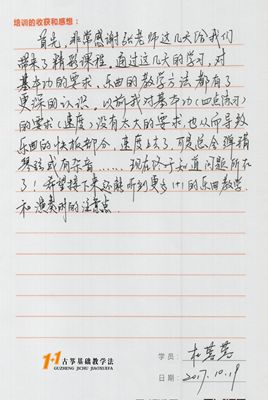 培训的收获和感想：
首先，非常感谢张老师这几天给我们
带来了精彩课程，通过这几天的学习，对
基本功的要求，乐曲的教学方法都有了
更深的认识。以前我对基本功（四点练习）
的要求（速度）没有太大的要求，也从而导致
乐曲的快板部分，速度上去了，可是总会弹错
琴弦或有杂音……现在终于知道问题所在
了！希望接下来还能听到更多1+1的乐曲教学
和演奏时的注意点。
1+1古筝基础教学法
GUZHENG JICHU JIAOXUEFA
学员：杜
日期：2017.10.19